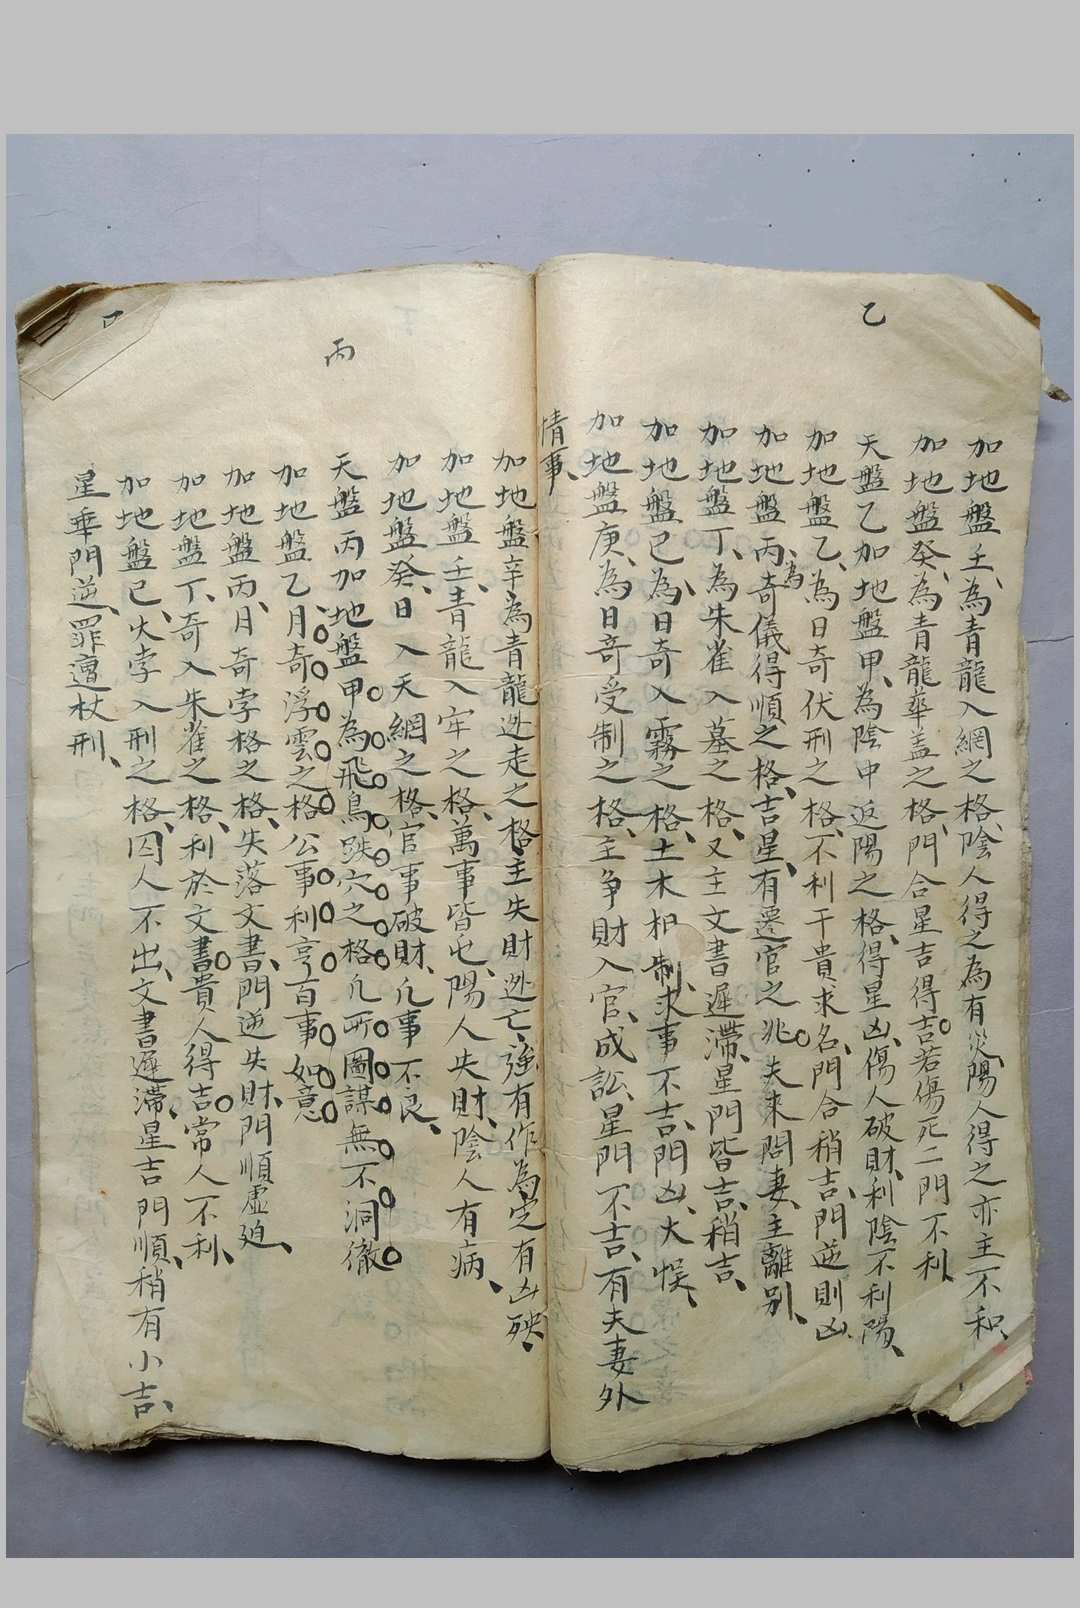 乙
加地盤壬、為青龍入網之格、陰人得之為有災、陽人得之亦主不和、
加地盤癸、為青龍華盖之格、門合星吉得吉、若傷死二門不利、
天盤乙加地盤甲、為陰中返陽之格、得星凶、傷人破財、利陰不利陽、
加地盤乙、為日奇伏刑之格、不利干貴求名、門合稍吉、門逆則凶、
加地盤丙、為奇儀得順之格、吉星、有遷官之兆、夫來問妻、主離別、
加地盤丁、為朱雀入墓之格、又主文書遲滯、星門皆吉、稍吉、
加地盤己、為日奇入霧之格、土木相制、求事不吉、門凶、大悞、
加地盤庚、為日奇受制之格、主争財入官、成訟、星門不吉、有夫妻外
情事、
加地盤辛、為青龍迯走之格、主失財迯亡、強有作為、定有凶殃、
加地盤壬、青龍入牢之格、萬事皆屯、陽人失財、陰人有病、
加地盤癸、日入天網之格、官事破財、凢事不良、
丙
天盤丙加地盤甲為飛鳥跌穴之格凢所圖謀無不洞徹
加地盤乙、月奇浮雲之格公事利亨百事如意
加地盤丙、月奇孛格之格、失落文書、門逆失財、門順虛廹、
加地盤丁、奇入朱雀之格、利於文書、貴人得吉、常人不利、
加地盤己、火孛入刑之格、囚人不出、文書遲滯、星吉門順、稍有小吉、
星乖門逆、罪遭杖刑、